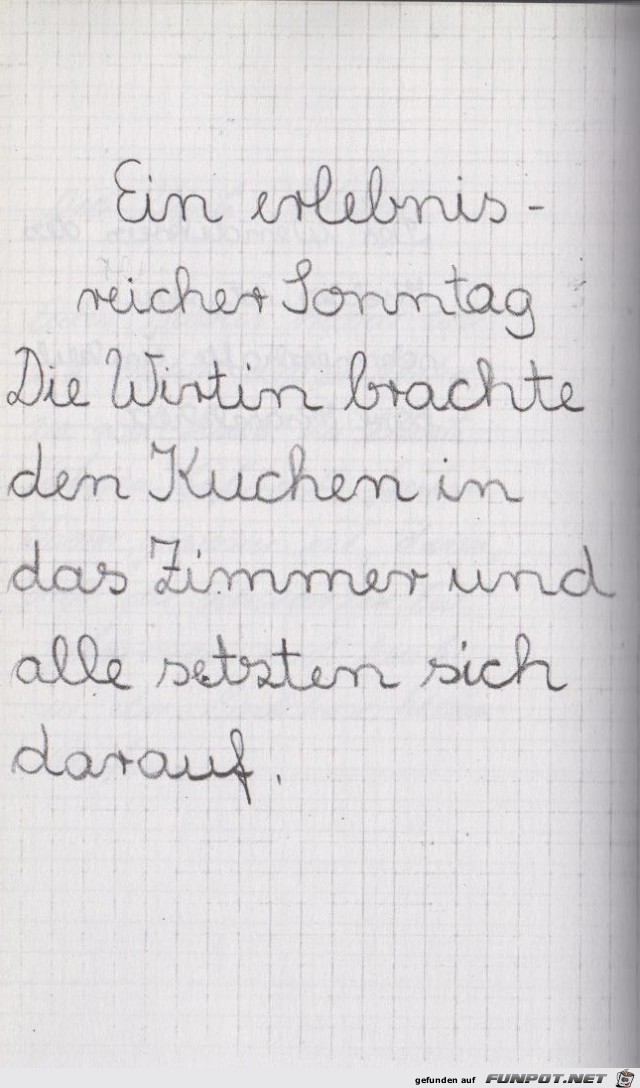 Ein erlebnis-
reicher Sonntag
Die Wirtin brachte
den Kuchen in
das Zimmer und
alle setzten sich
darauf.
gefunden auf FUNPOT.NET